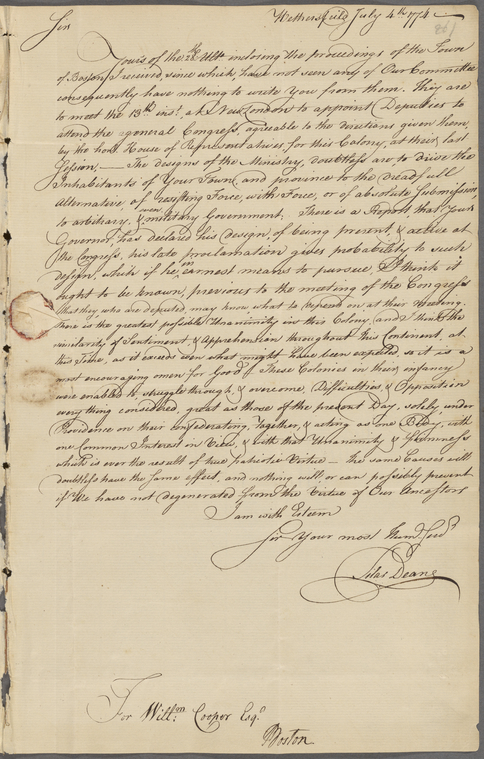 Wethersfield July 4th 1774
Sir
Yours of the 28th Ult. inclosing the proceedings of the Town
of Boston I received, since which, have not seen any of Our Committee
consequently have nothing to write You from them. They are
to meet the 13th inst. at New London to appoint Deputies to
attend the general Congress, agreeable to the directions given them,
by the hon. House of Representatives for this Colony, at their last
Session. — The designs of the Ministry, doubtless are to drive the
Inhabitants of Your Town and province to the dreadfull
Alternative, of resisting Force, with Force, or of absolute Submission,
to arbitrary, & even military Government. There is a Report that Your
Governor, has declared his design, of being present, & active at
the Congress, his late proclamation gives probability to such
design, which if he in earnest means to pursue, I think it
ought to be known, previous to the meeting of the Congress
that they who are deputed may know what to depend on at their Meeting.
there is the greatest possible Unanimity in this Colony and I think the
similarity of Sentiment, & Apprehension throughout this Continent, at
this Time, as it exceeds even what might have been expected, so it is a
most encouraging omen for Good. if These Colonies in their infancy
were enabled to struggle through, & overcome, Difficulties, & Opposition
every thing considered, great as those of the present Day, solely, under
Providence on their confederating, together, & acting as one Body, with
one Common Interest in View, & with that Unanimity & Firmness
which is ever the result of true patriotic Virtue — the same Causes will
doubtless have the same effect, and nothing will, or can possibly prevent
if We have not degenerated from the Virtue of Our Ancestors
I am with Esteem
Sir Your most Hum. Serv.
Silas Deane
For Willm. Cooper Esq.
Boston